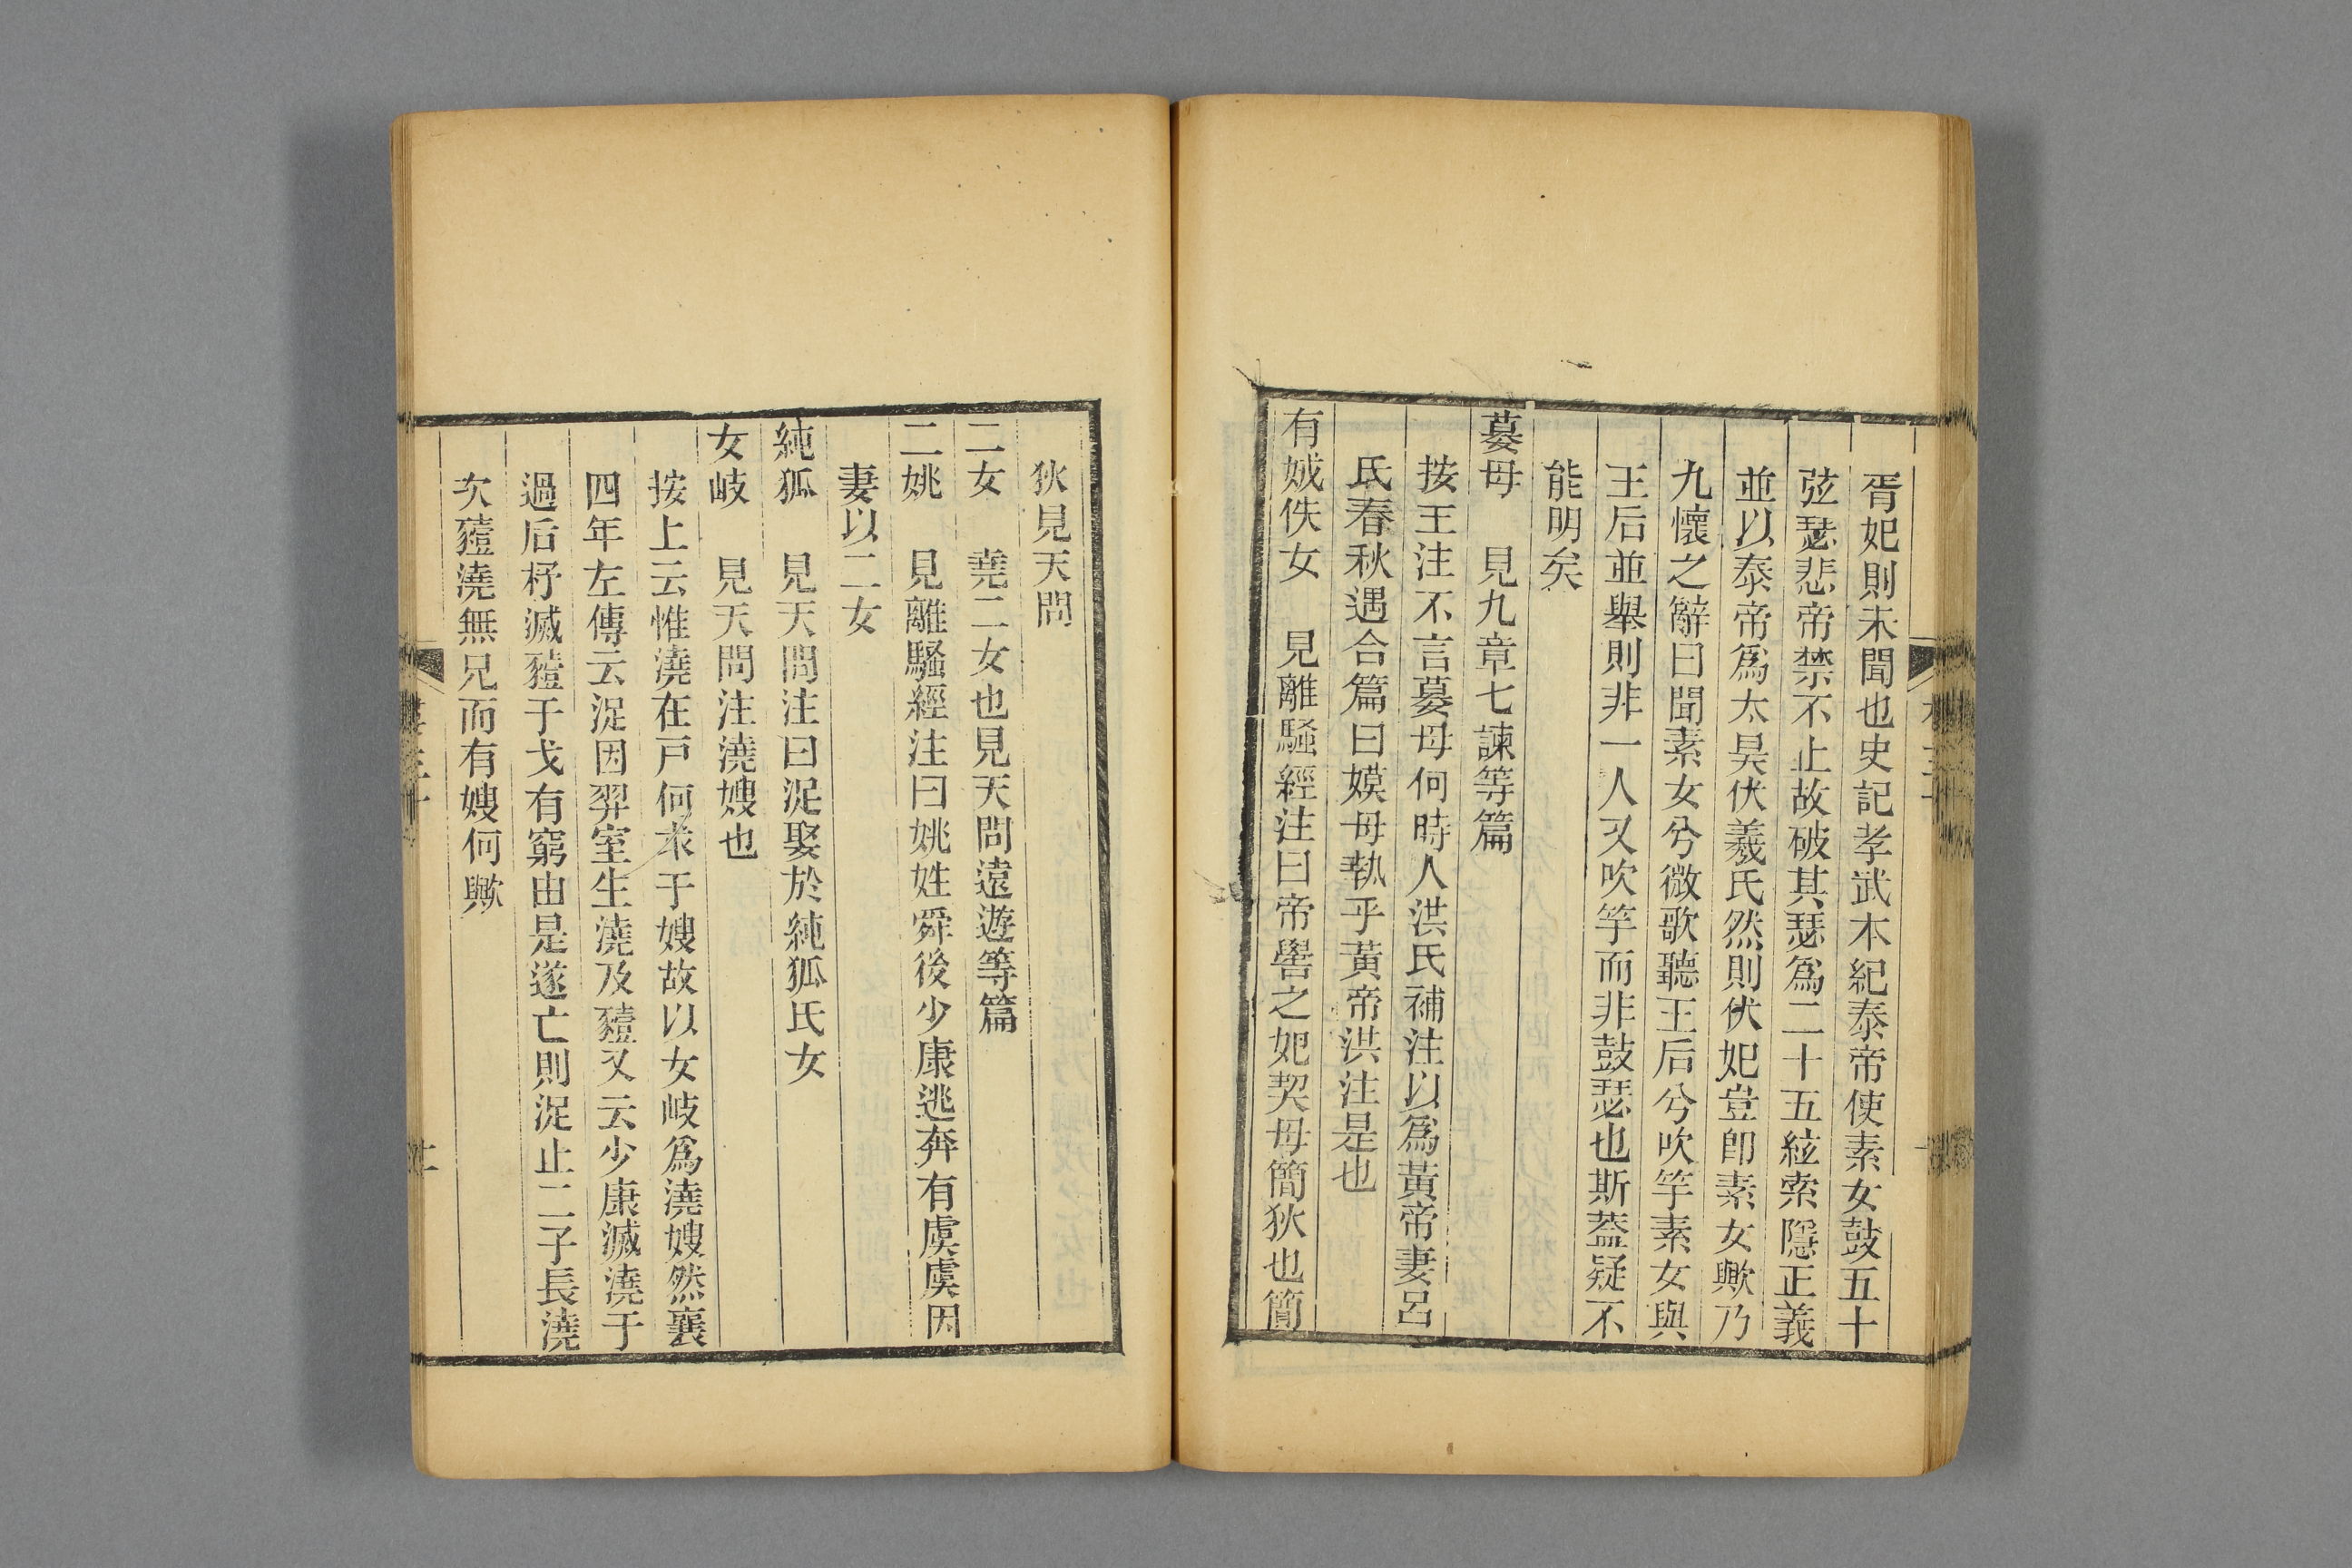 胥妃則未聞也史記孝武本紀泰帝使素女鼓五十
弦瑟悲帝禁不止故破其瑟爲二十五絃索隱正義
並以泰帝爲太昊伏羲氏然則伏妃豈卽素女歟乃
九懷之辭曰聞素女兮微歌聽王后兮吹竽素女與
王后並舉則非一人又吹竽而非鼓瑟也斯葢疑不
能明矣
䒤母　見九章七諫等篇
按王注不言䒤母何時人洪氏補注以爲黃帝妻呂
氏春秋遇合篇曰嫫母執乎黃帝洪注是也
有娀佚女　見離騷經注曰帝嚳之妃契母簡狄也簡
狄見天問
二女　堯二女也見天問遠遊等篇
二姚　見離騷經注曰姚姓舜後少康逃奔有虞虞因
妻以二女
純狐　見天問注曰浞娶於純狐氏女
女岐　見天問注澆嫂也
按上云惟澆在戸何求于嫂故以女岐爲澆嫂然襄
四年左傳云浞因羿室生澆及豷又云少康滅澆于
過后杼滅豷于戈有窮由是遂亡則浞止二子長澆
次豷澆無兄而有嫂何歟